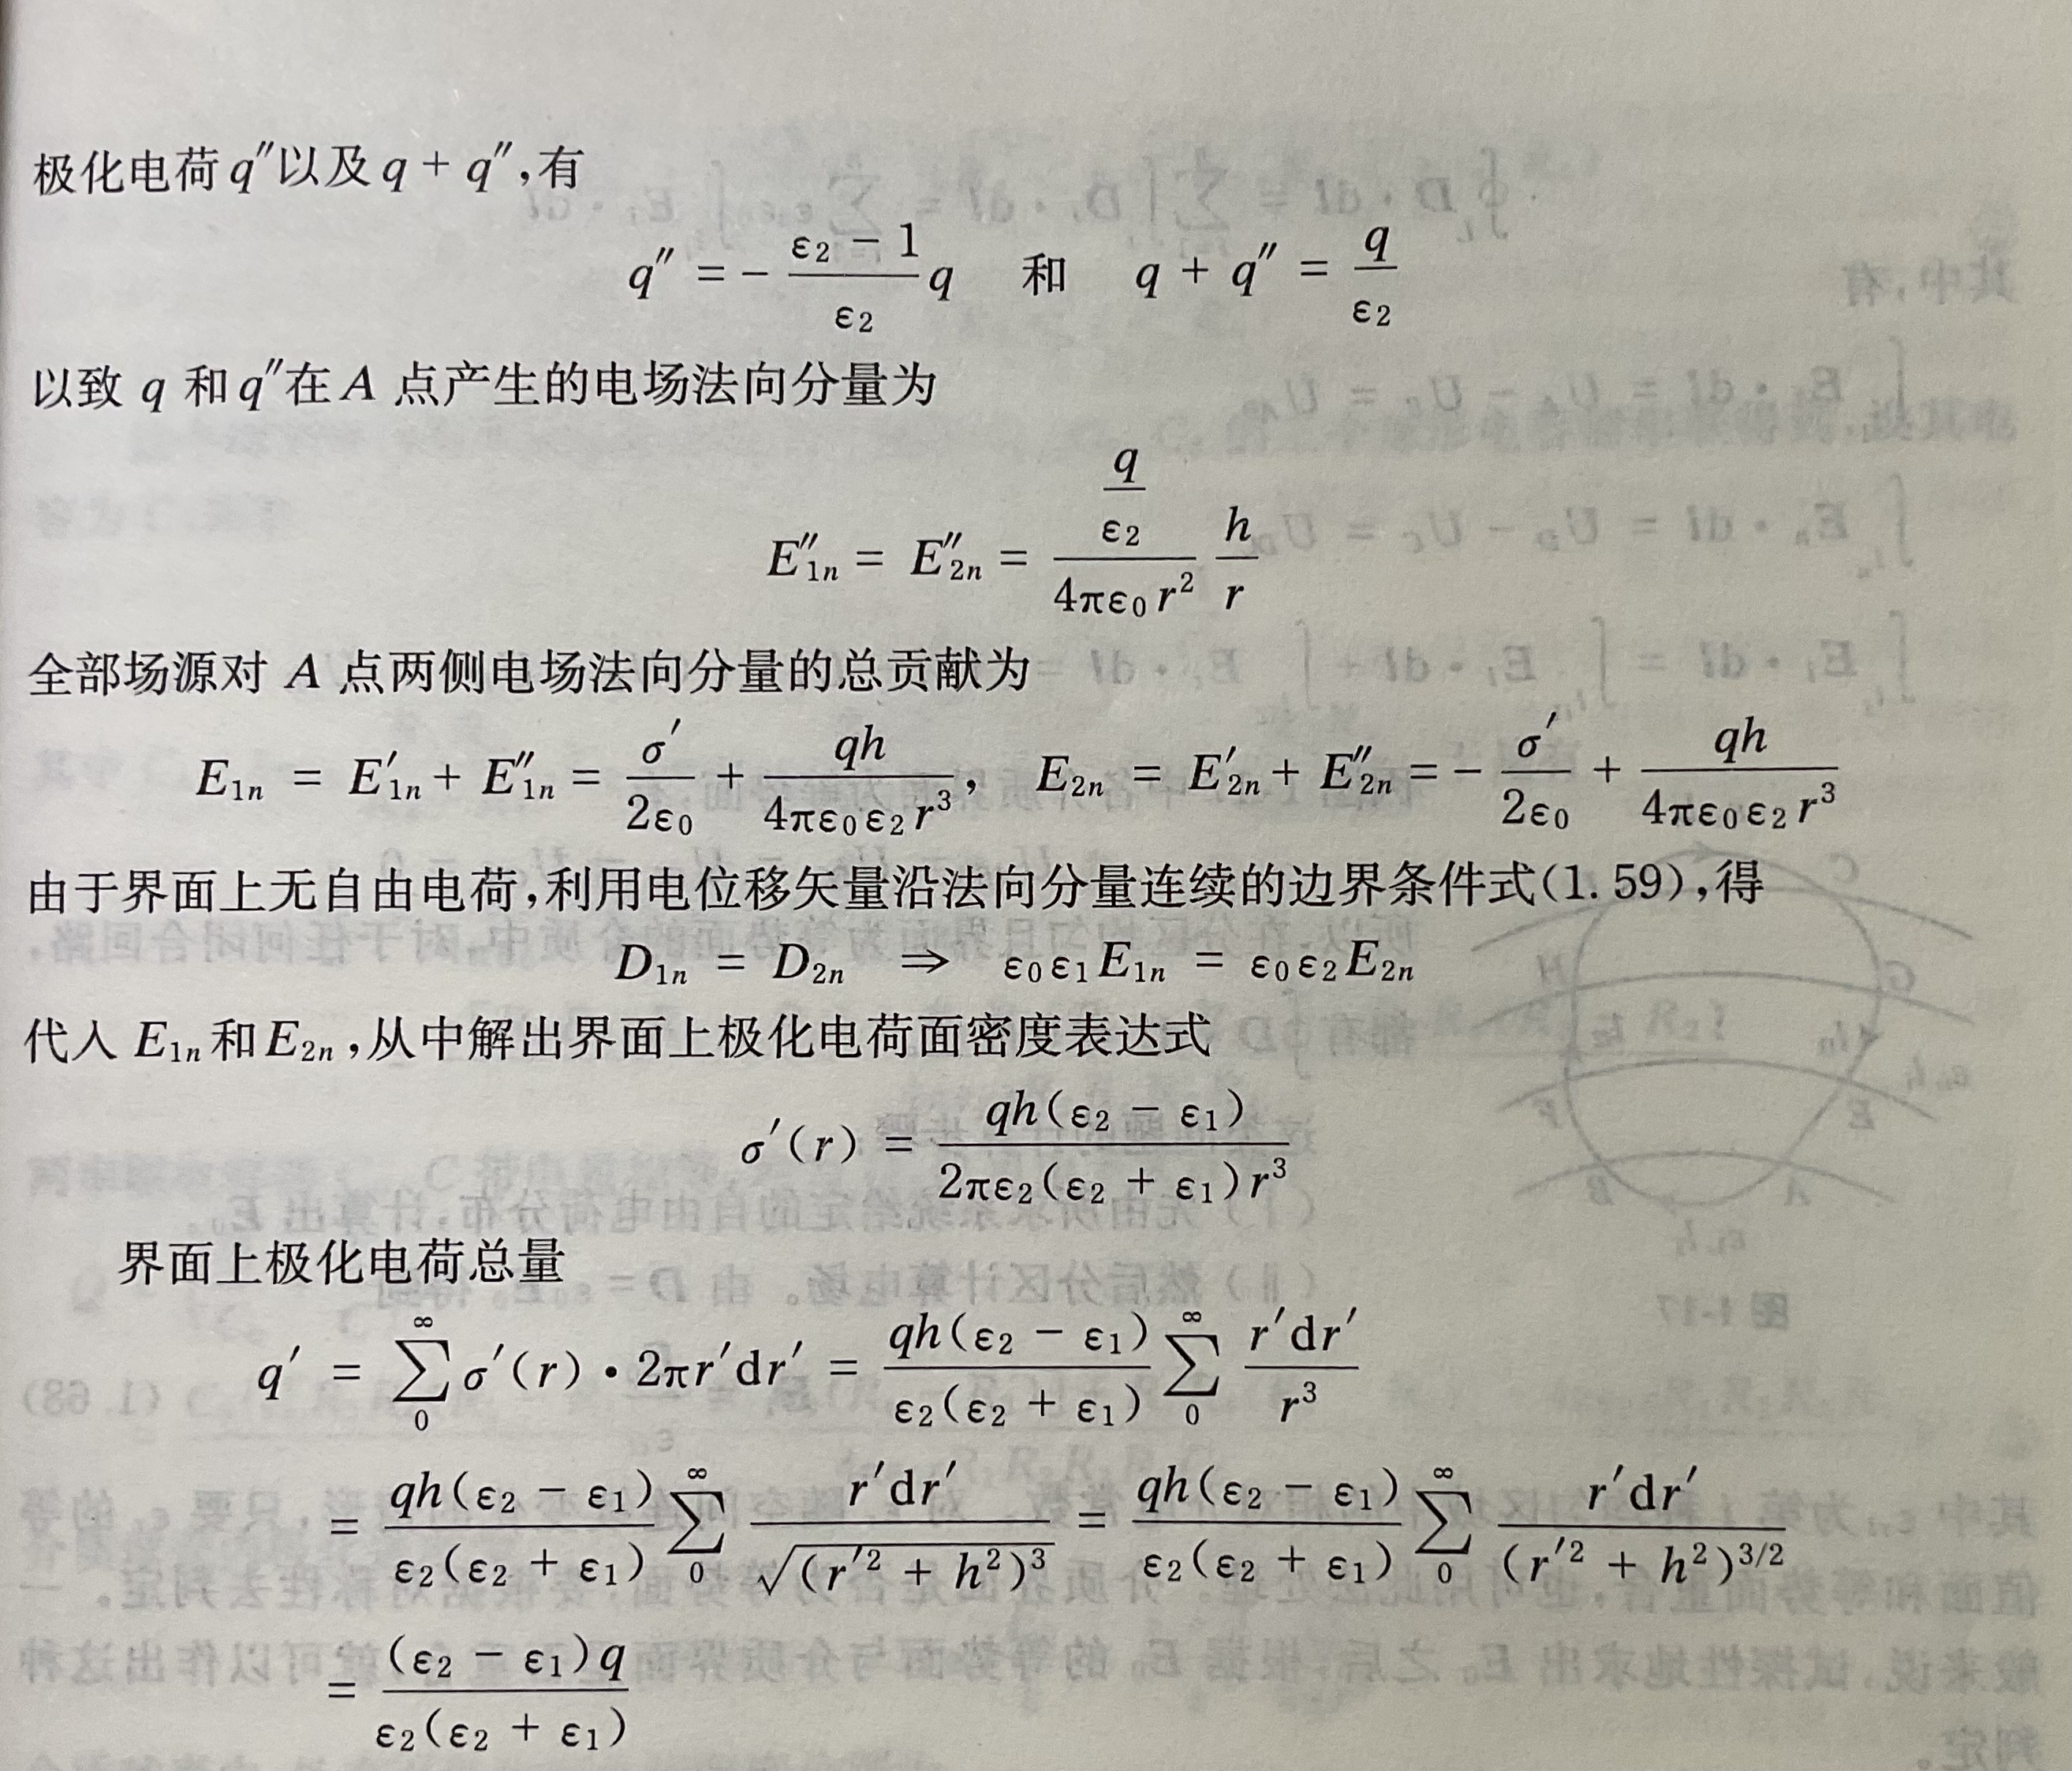 极化电荷 q″以及 q + q″,有
q″ = − \frac{ε₂ − 1}{ε₂} q 和 q + q″ = \frac{q}{ε₂}
以致 q 和 q″在 A 点产生的电场法向分量为
E″_{1n} = E″_{2n} = \frac{\frac{q}{ε₂}}{4πε₀r²} \frac{h}{r}
全部场源对 A 点两侧电场法向分量的总贡献为
E_{1n} = E′_{1n} + E″_{1n} = \frac{σ′}{2ε₀} + \frac{qh}{4πε₀ε₂r³}, E_{2n} = E′_{2n} + E″_{2n} = − \frac{σ′}{2ε₀} + \frac{qh}{4πε₀ε₂r³}
由于界面上无自由电荷,利用电位移矢量沿法向分量连续的边界条件式(1.59),得
D_{1n} = D_{2n} ⇒ ε₀ε₁E_{1n} = ε₀ε₂E_{2n}
代入 E_{1n}和E_{2n},从中解出界面上极化电荷面密度表达式
σ′(r) = \frac{qh(ε₂ − ε₁)}{2πε₂(ε₂ + ε₁)r³}
界面上极化电荷总量
q′ = \sum_{0}^{∞} σ′(r) · 2πr′dr′ = \frac{qh(ε₂ − ε₁)}{ε₂(ε₂ + ε₁)} \sum_{0}^{∞} \frac{r′dr′}{r³}
= \frac{qh(ε₂ − ε₁)}{ε₂(ε₂ + ε₁)} \sum_{0}^{∞} \frac{r′dr′}{\sqrt{(r′² + h²)³}} = \frac{qh(ε₂ − ε₁)}{ε₂(ε₂ + ε₁)} \sum_{0}^{∞} \frac{r′dr′}{(r′² + h²)^{3/2}}
= \frac{(ε₂ − ε₁)q}{ε₂(ε₂ + ε₁)}